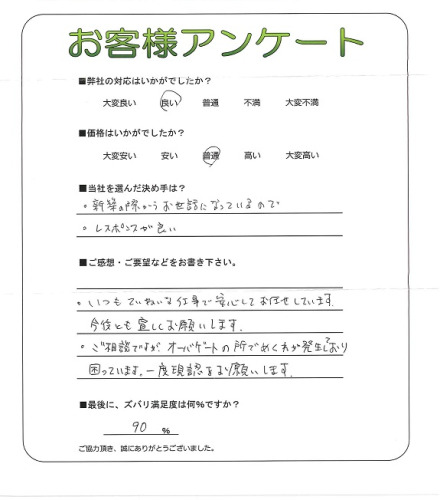 お客様アンケート
■弊社の対応はいかがでしたか?
大変良い 良い 普通 不満 大変不満
■価格はいかがでしたか?
大変安い 安い 普通 高い 大変高い
■当社を選んだ決め手は?
・新築の際からお世話になっているので
・レスポンスが良い
■ご感想・ご要望などをお書き下さい。
・いつもていねいな仕事で安心してお任せしています.
今後とも宜しくお願いします.
・ご相談ですが オーバゲートの所でめくれが発生しており
困っています. 一度現認をお願いします.
■最後に、ズバリ満足度は何%ですか?
90 %
ご協力頂き、誠にありがとうございました。